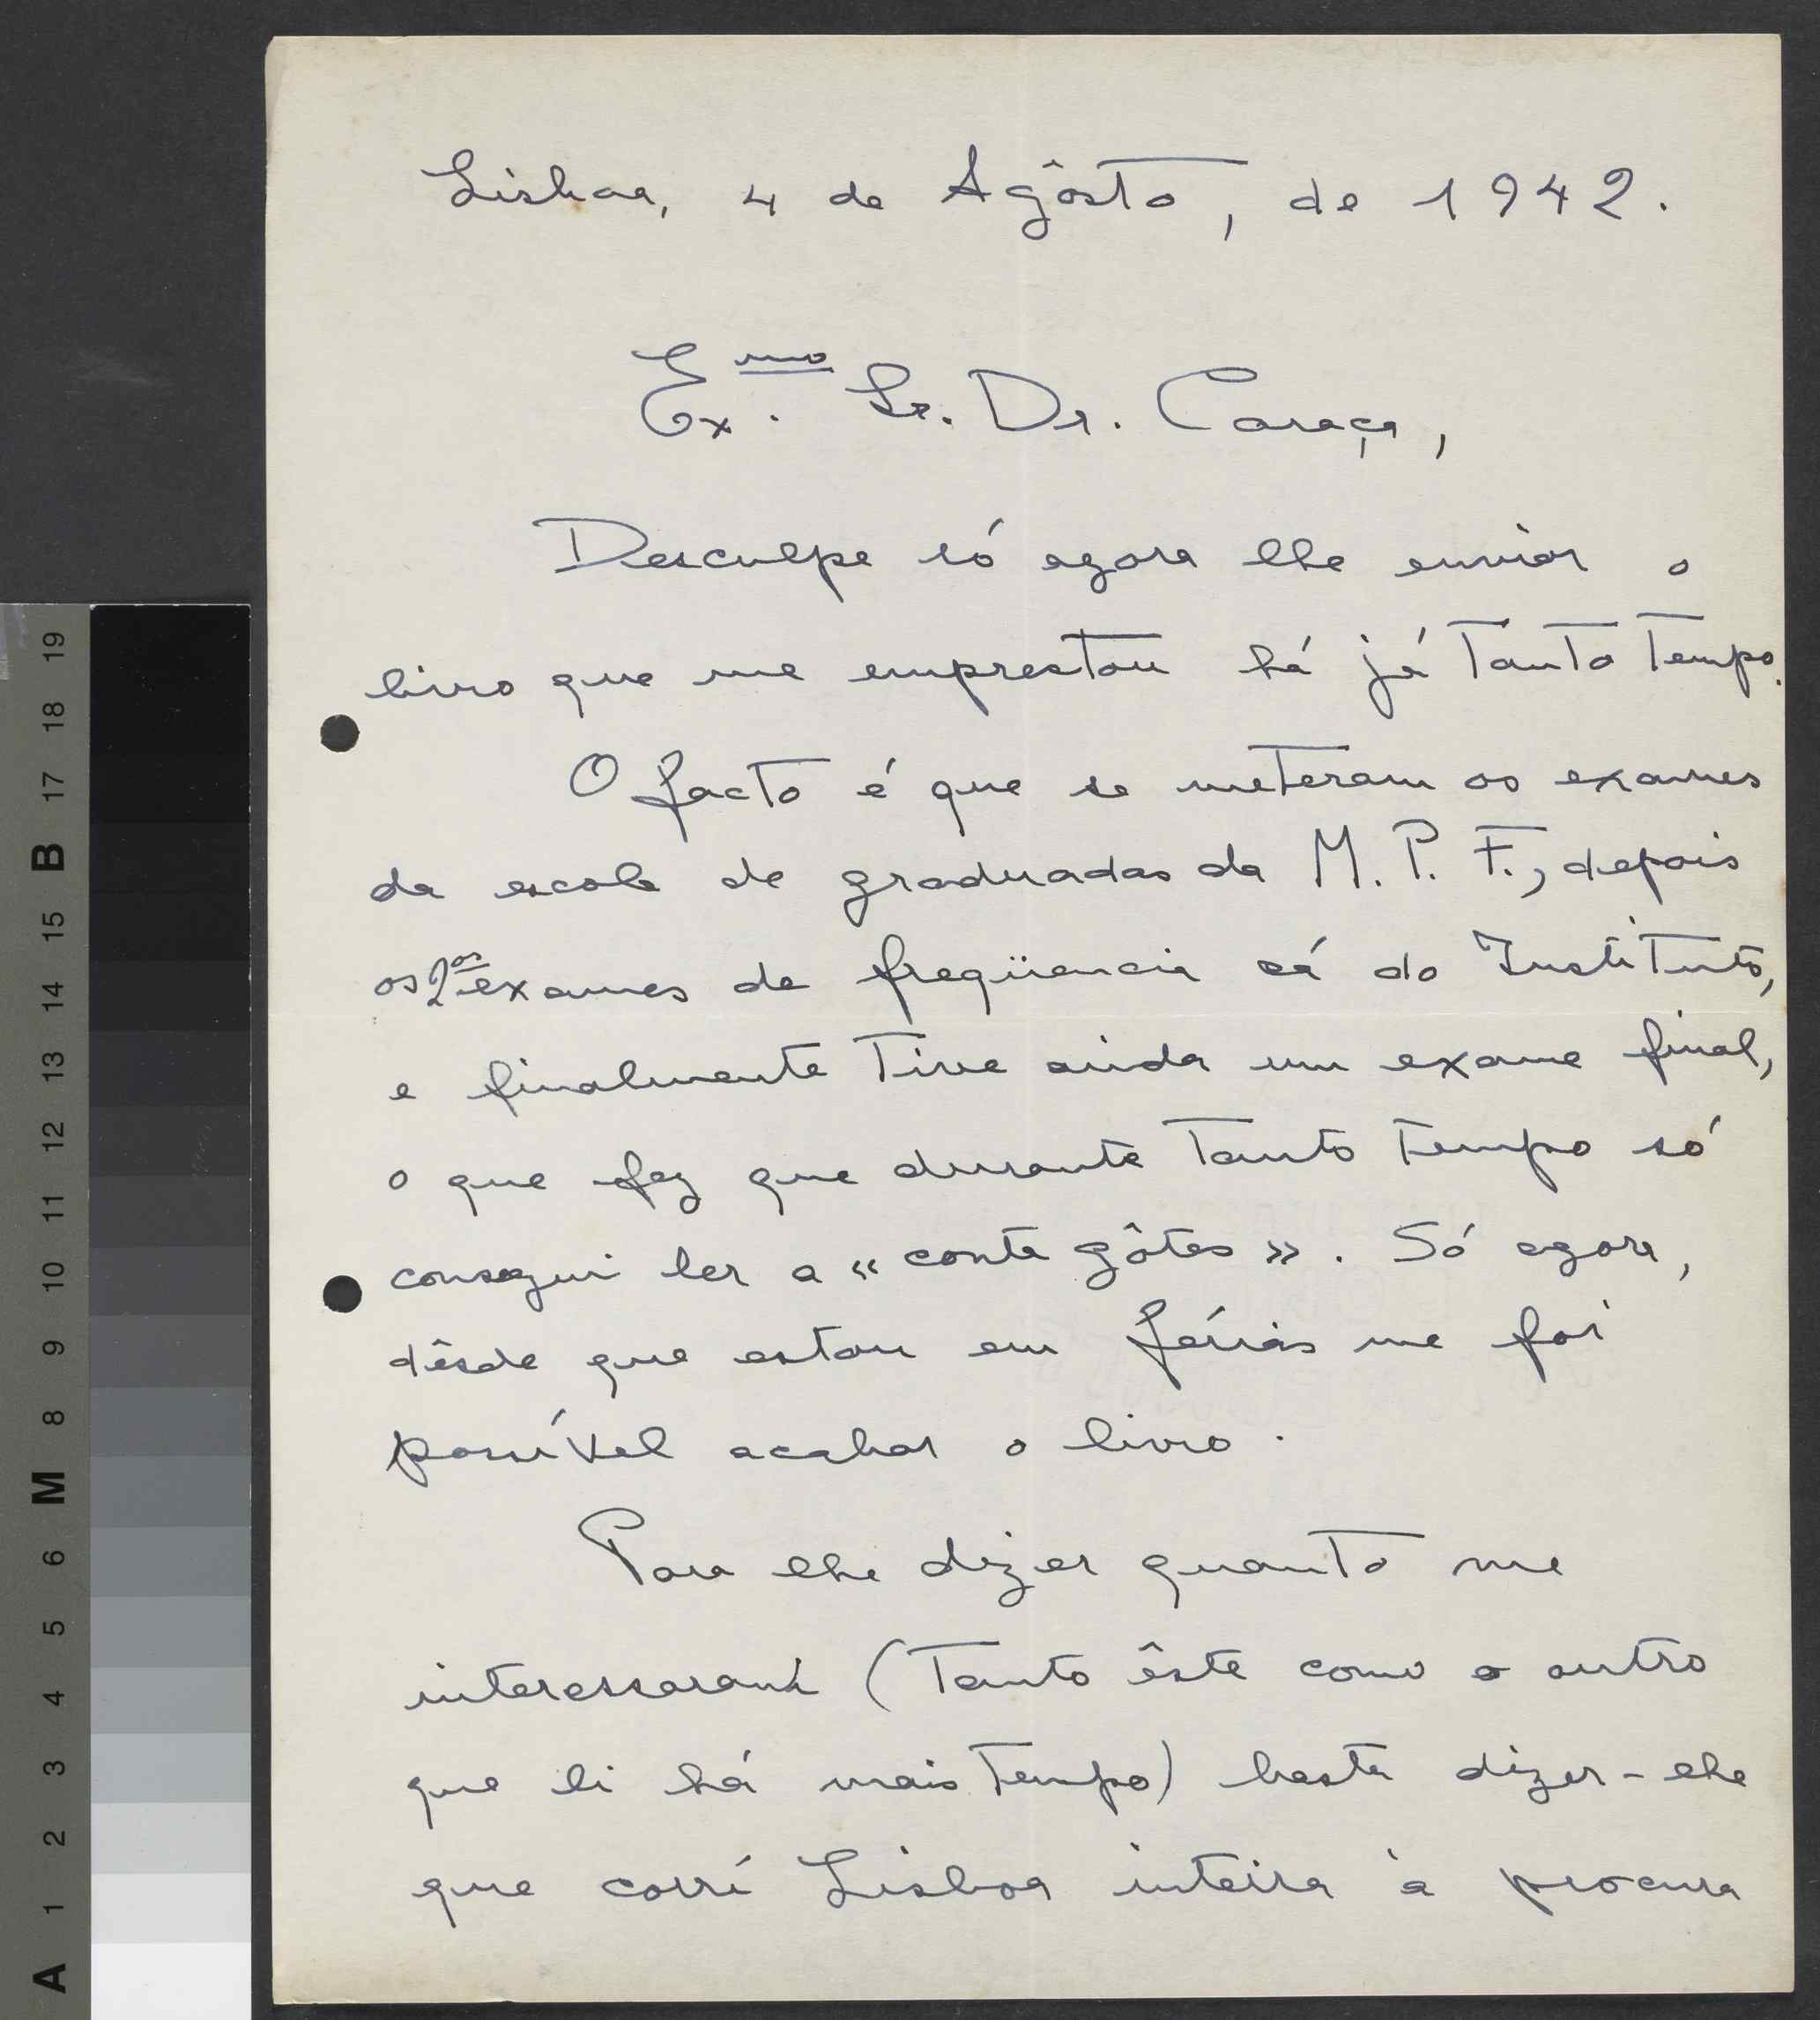 Lisboa, 4 de Agôsto, de 1942.
Ex.mo Sr. Dr. Caraça,
Desculpe só agora lhe enviar o
livro que me emprestou há já tanto tempo.
O facto é que se meteram os exames
da escola de graduadas da M. P. F., depois
os 2os exames de freqüencia cá do Instituto,
e finalmente tive ainda um exame final,
o que fez que durante tanto tempo só
consegui ler a « conta gôtas ». Só agora,
dêsde que estou em férias me foi
possível acabar o livro.
Para lhe dizer quanto me
interessaram (tanto êste como o outro
que li há mais tempo) basta dizer-lhe
que corrí Lisboa inteira à procura
19
18
17
B
15
14
13
12
11
10
9
8
M
6
5
4
3
2
1
A